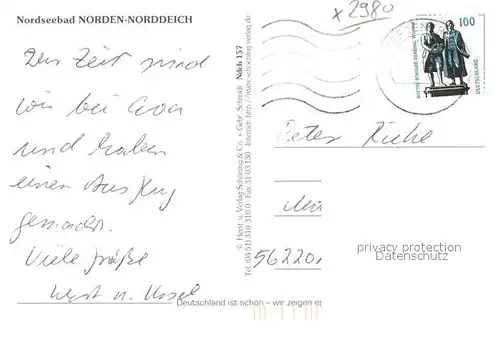 Nordseebad NORDEN-NORDDEICH
x 2980
Der Zeit sind
wir bei
und haben
einen Ausflug
gemacht.
Viele Grüße
© Herst. u. Verlag Schöning & Co. + Gebr. Schmidt
Tel. (04 51) 310 310 0 · Fax 31 03 130 · Internet: http://www.schoening-verlag.de
Ndch 157
100
DEUTSCHLAND
GOETHE-SCHILLER-DENKMAL WEIMAR
Peter
56220,
privacy protection
Datenschutz
Deutschland ist schön – wir zeigen es